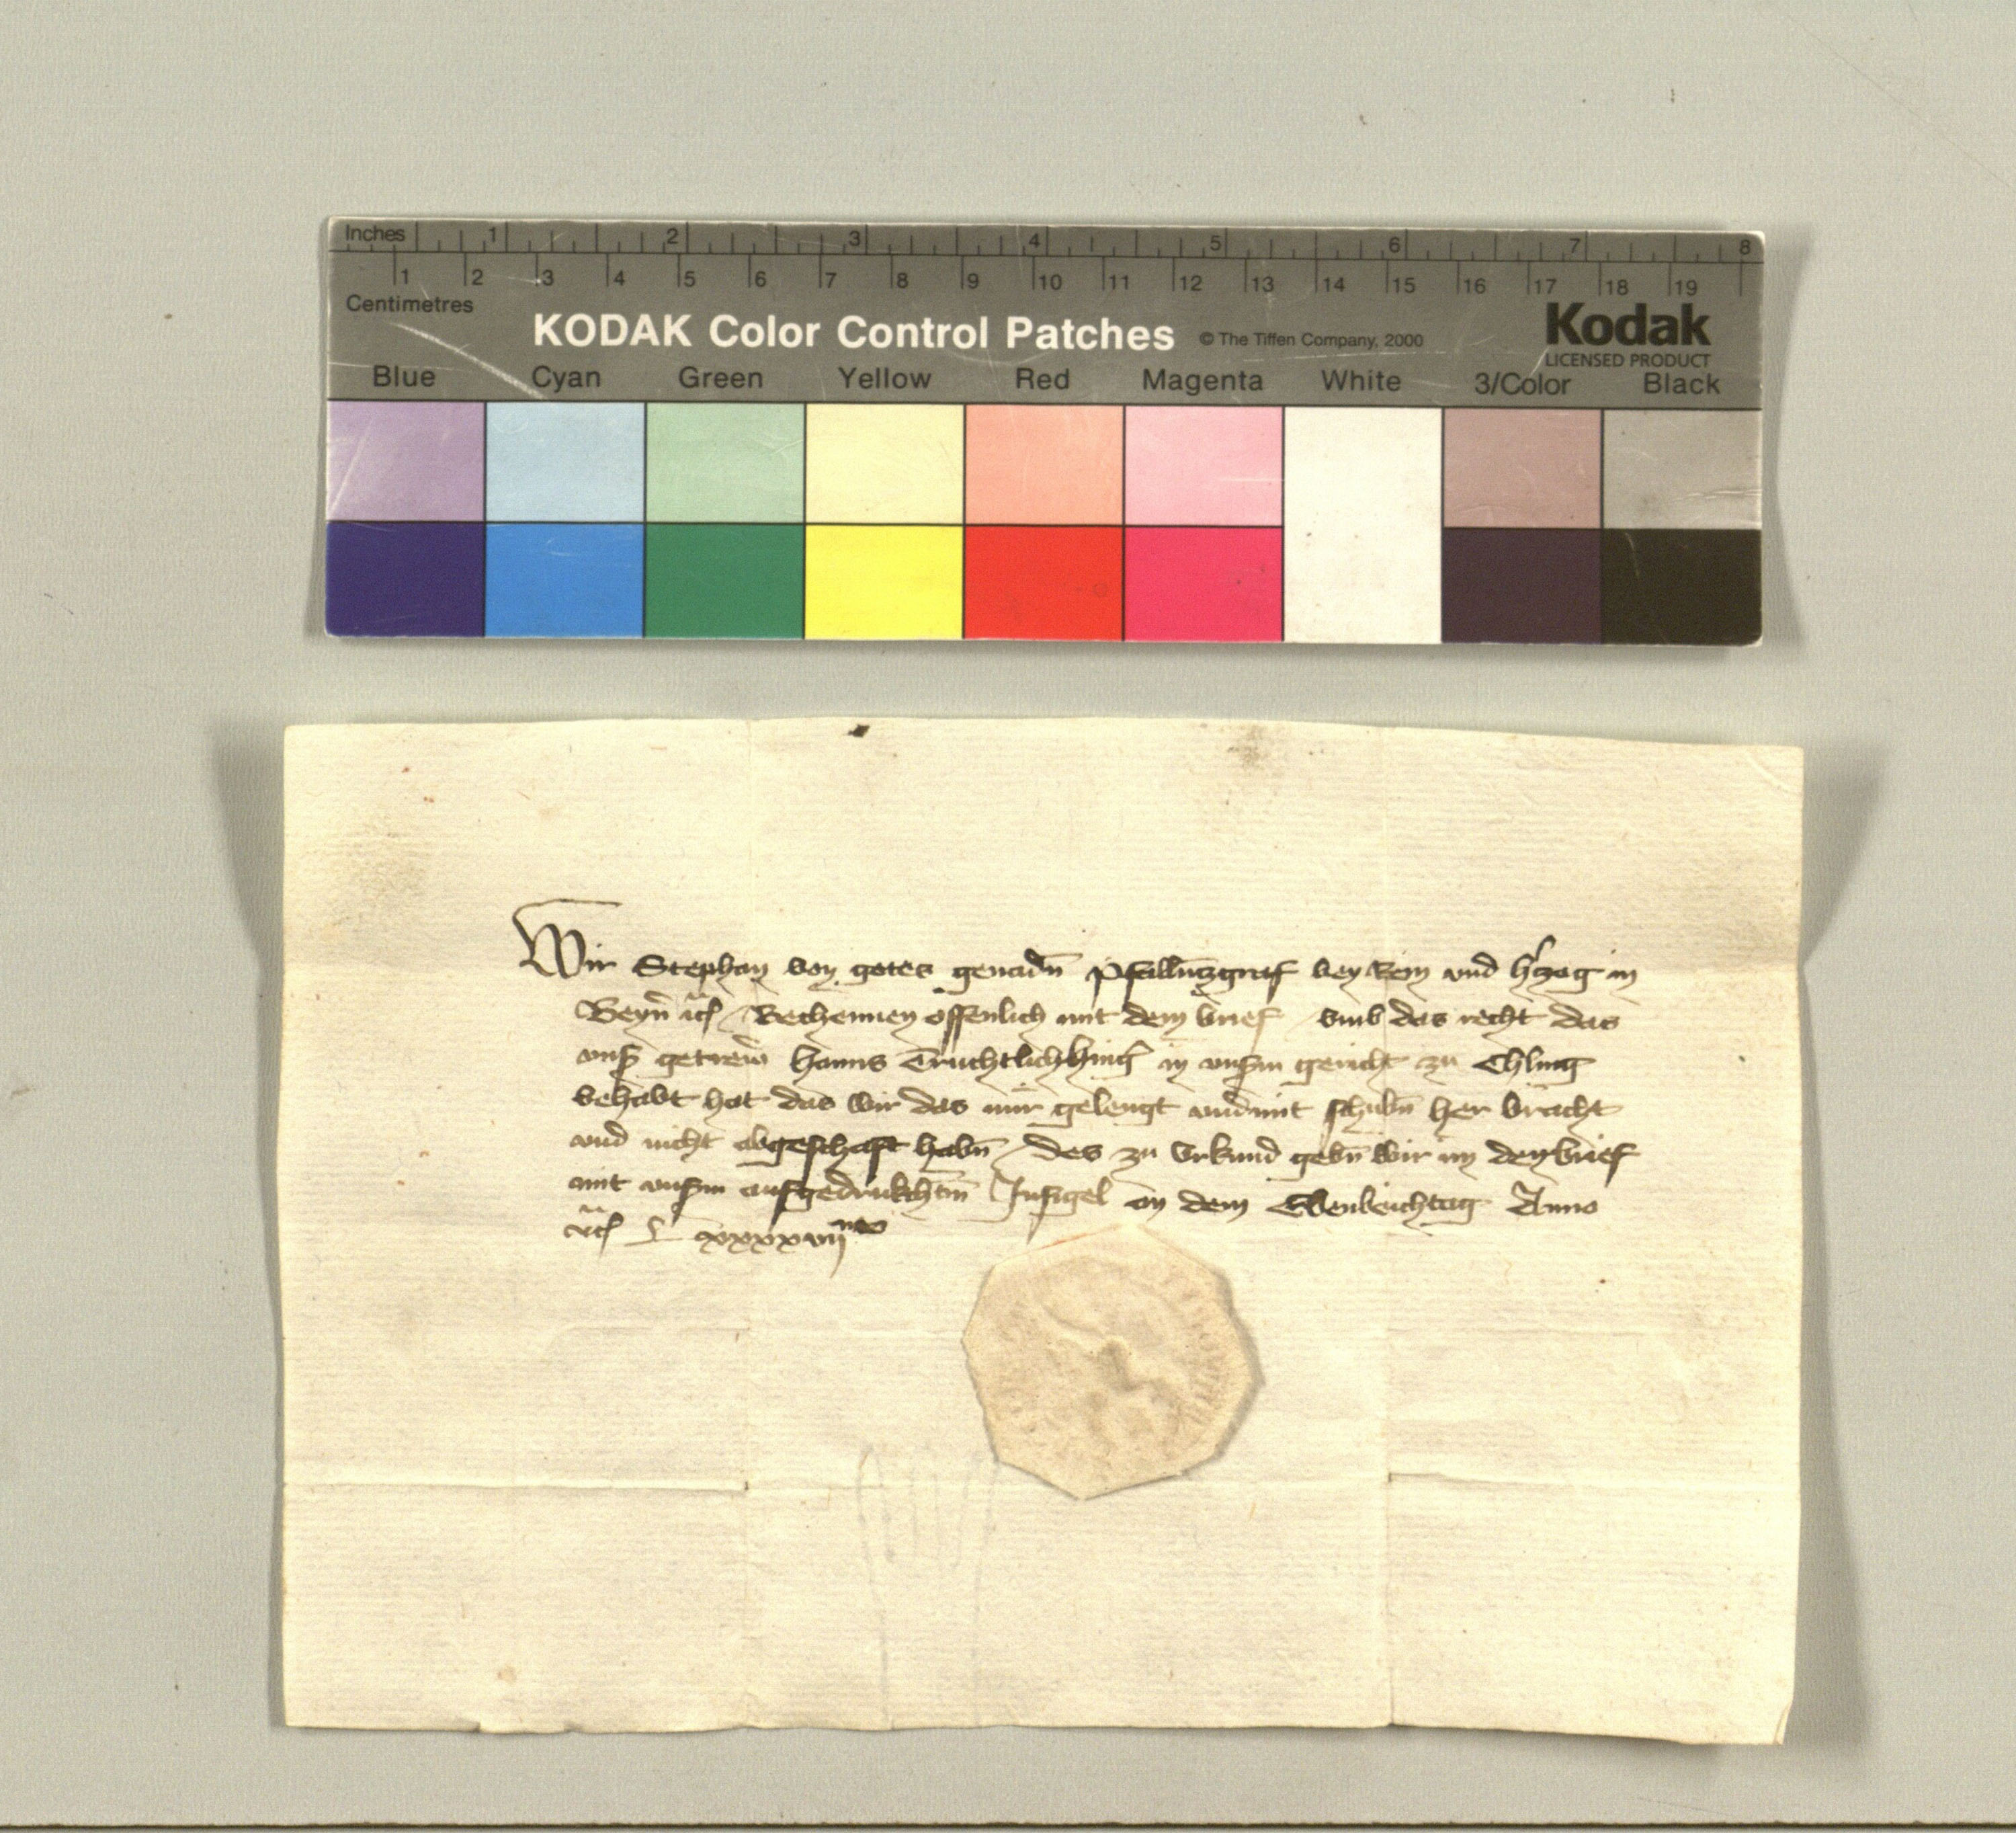 Inches 1 2 3 4 5 6 7 8
1 2 3 4 5 6 7 8 9 10 11 12 13 14 15 16 17 18 19
Centimetres
KODAK Color Control Patches © The Tiffen Company, 2000 Kodak
LICENSED PRODUCT
Blue Cyan Green Yellow Red Magenta White 3/Color Black
Wir Stephan von gotes genadn̄ Pfallnczgraf bey Rein vnd hczog in
Beyrn̄ etc Bechennen offenlich mit dem brief vmb das recht das
vnſ getrew̄ hanns in vnſm gericht zu Chling
behabt hat das wir das nur gelengt vnd mit ſchubn̄ her bracht
vnd nicht abgeſchaft habn̄ des zu vrkund gebn̄ wir im den brief
mit vnſm aufgedrukchtm̄ Inſigel an dem Ebenbeichtag Anno
etc L xxxxviij